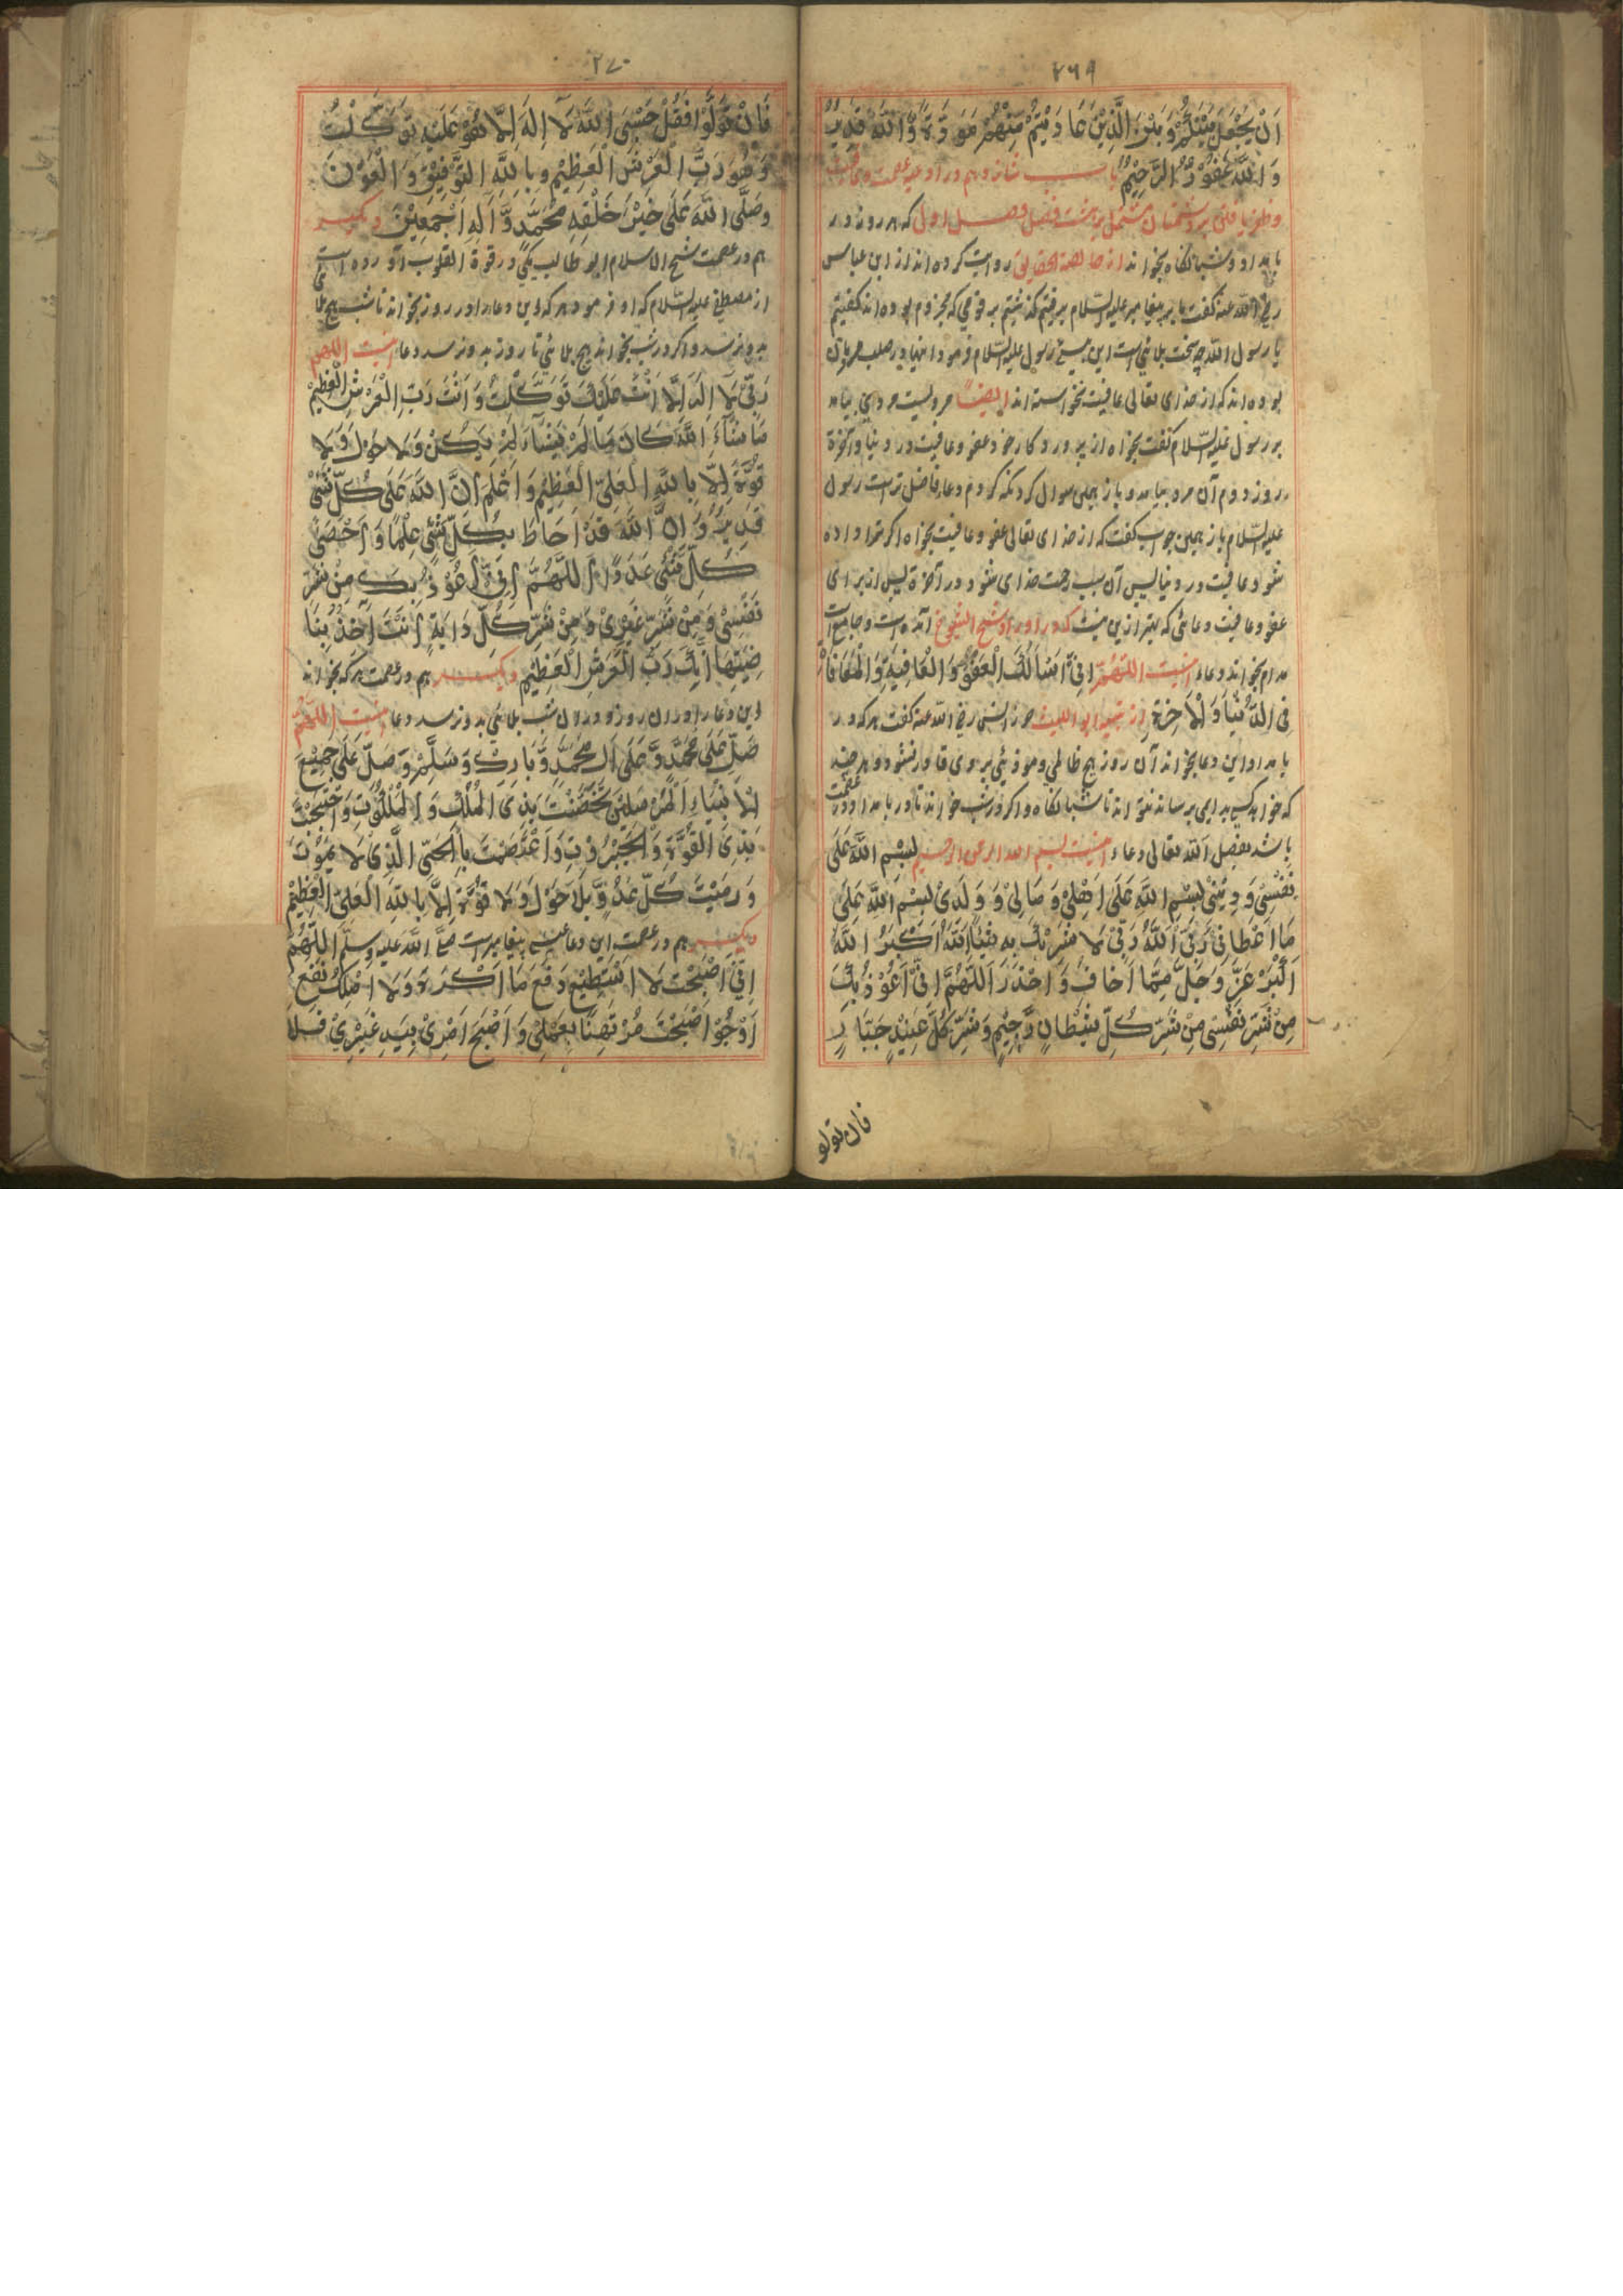 ٢٦٩
اَنْ يَجْعَلَ بَيْنَكُمْ وَ بَيْنَ الَّذِيْنَ عَادَيْتُمْ مِنْهُمْ مَوَدَّةً وَّ اللّٰهُ قَدِيْرٌ
وَ اللّٰهُ غَفُوْرٌ الرَّحِيْمٌ باب شانزدهم در ادعيه عصمت و
و ظفر يافتن بر دشمنان مشتمل بر هشت فصل فصل اول كه هر روز در
بامداد و شبانگاه بخواند از خالصة الحقايق روايت كرده اند از ابن عباس
رضى الله عنه گفت با پيغامبر عليه السلام برفتيم گذشتيم بر قومى كه مجزوم بوده اند گفتيم
يا رسول الله چه سخت بلائى است اين رسول عليه السلام فرمود اينها
بوده اند كه از خداى تعالى عافيت نخواسته اند ايضاً مرويست مردى بيامد
بر رسول عليه السلام گفت بخواه از پروردگار خود عفو و عافيت در دنيا و آخرة
روز دوم آن مرد بيامد و باز همين سوال كرد كه كدام دعا فاضل تر است رسول
عليه السلام باز همين جواب گفت كه از خداى تعالى عفو و عافيت بخواه اگر ترا داده
شود عافيت در دنيا پس آن سبب رحمت خداى شود در آخرة پس از براى
عفو و عافيت دعائى كه بهتر ازين نيست كه در اوراد شيخ الشيوخ آمده است و جامع است
مدام بخواند دعاء اينست اللّهُمَّ اِنِّىْ اَسْاَلُكَ الْعَفْوَ وَ الْعَافِيَةَ وَ الْمُعَافَاةَ
فِى الدُّنْيَا وَ الْاٰخِرَةِ از تنبيه ابو الليث حرز انس رضى الله عنه گفت هر كه در
بامداد اين دعا بخواند آن روز هيچ ظالمى و موذيئى بر وى قادر نشود و هر چند
كه خواهد كسى بدى برساند نتواند تا شبانگاه و اگر در شب خواند تا در بامداد در عصمت
باشد بفضل الله تعالى دعاء اينست بسم الله الرحمن الرحيم بِسْمِ اللّٰهِ عَلٰى
نَفْسِىْ وَ دِيْنِىْ بِسْمِ اللّٰهِ عَلٰى اَهْلِىْ وَ مَالِىْ وَ وَلَدِىْ بِسْمِ اللّٰهِ عَلٰى
مَا اَعْطَانِىْ رَبِّىْ اَللّٰهُ رَبِّىْ لَا نُشْرِكُ بِهِ شَيْئًا اَللّٰهُ اَكْبَرُ اَللّٰهُ
اَكْبَرُ عَزَّ وَ جَلَّ مِمَّا اَخَافُ وَ اَحْذَرُ اَللّٰهُمَّ اِنِّىْ اَعُوْذُ بِكَ
مِنْ شَرِّ نَفْسِىْ مِنْ شَرِّ كُلِّ شَيْطَانٍ رَّجِيْمٍ وَ شَرِّ كُلِّ عَنِيْدٍ جَبَّارٍ
فان تولو
٢٧٠
فَاِنْ تَوَلَّوْا فَقُلْ حَسْبِىَ اللّٰهُ لَا اِلٰهَ اِلَّا هُوَ عَلَيْهِ تَوَكَّلْتُ
وَ هُوَ رَبُّ الْعَرْشِ الْعَظِيْمِ وَ بِاللّٰهِ التَّوْفِيْقِ وَ الْعَوْنَ
وَ صَلَّى اللّٰهُ عَلٰى خَيْرِ خَلْقِهِ مُحَمَّدٍ وَّ اٰلِهِ اَجْمَعِيْنَ ديگر
هم در عصمت شيخ الاسلام ابو طالب مكى در قوة القلوب آورده است
از مصطفى عليه السلام كه او فرمود هر كه اين دعا را در روز بخواند تا شب هيچ بلائى
بدو نرسد و اگر در شب بخواند هيچ بلائى تا روز بدو نرسد دعا اينست اللهم
رَبِّىْ لَا اِلٰهَ اِلَّا اَنْتَ عَلَيْكَ تَوَكَّلْتُ وَ اَنْتَ رَبُّ الْعَرْشِ الْعَظِيْمِ
مَا شَآءَ اللّٰهُ كَانَ مَا لَمْ يَشَآءْ لَمْ يَكُنْ وَ لَا حَوْلَ وَ لَا
قُوَّةَ اِلَّا بِاللّٰهِ الْعَلِىِّ الْعَظِيْمِ وَ اعْلَمْ اَنَّ اللّٰهَ عَلٰى كُلِّ شَىْءٍ
قَدِيْرٌ وَ اَنَّ اللّٰهَ قَدْ اَحَاطَ بِكُلِّ شَىْءٍ عِلْمًا وَ اَحْصٰى
كُلَّ شَىْءٍ عَدَدًا اَللّٰهُمَّ اِنِّىْ اَعُوْذُ بِكَ مِنْ شَرِّ
نَفْسِىْ وَ مِنْ شَرِّ غَيْرِىْ وَ مِنْ شَرِّ كُلِّ دَابَّةٍ اَنْتَ اٰخِذٌ بِنَا
صِيَتِهَا اِنَّكَ رَبُّ الْعَرْشِ الْعَظِيْمِ ديگر هم در عصمت هر كه بخواند
اين دعا را در آن روز و در آن شب بلائى بدو نرسد دعا اينست اَللّٰهُمَّ
صَلِّ عَلٰى مُحَمَّدٍ وَّ عَلٰى اٰلِ مُحَمَّدٍ وَّ بَارِكْ وَ سَلِّمْ وَ صَلِّ عَلٰى جَمِيْعِ
الْاَنْبِيَاءِ الْمُرْسَلِيْنَ تَحَصَّنْتُ بِذِى الْمُلْكِ وَ الْمَلَكُوْتِ وَ احْتَجَبْتُ
بِذِى الْقُوَّةِ وَ الْجَبَرُوْتِ وَ اعْتَصَمْتُ بِالْحَىِّ الَّذِىْ لَا يَمُوْتُ
وَ رَمَيْتُ كُلَّ عَدُوٍّ بِلَا حَوْلَ وَ لَا قُوَّةَ اِلَّا بِاللّٰهِ الْعَلِىِّ الْعَظِيْمِ
ديگر هم در عصمت اين دعا پيغامبر است صلى الله عليه وسلم اَللّٰهُمَّ
اِنِّىْ اَصْبَحْتُ لَا اَسْتَطِيْعُ دَفْعَ مَا اَكْرَهُ وَ لَا اَمْلِكُ نَفْعَ
اَرْجُوْ اَصْبَحْتُ مُرْتَهِنًا بِعَمَلِىْ وَ اَصْبَحَ اَمْرِىْ بِيَدِ غَيْرِىْ فَلَا